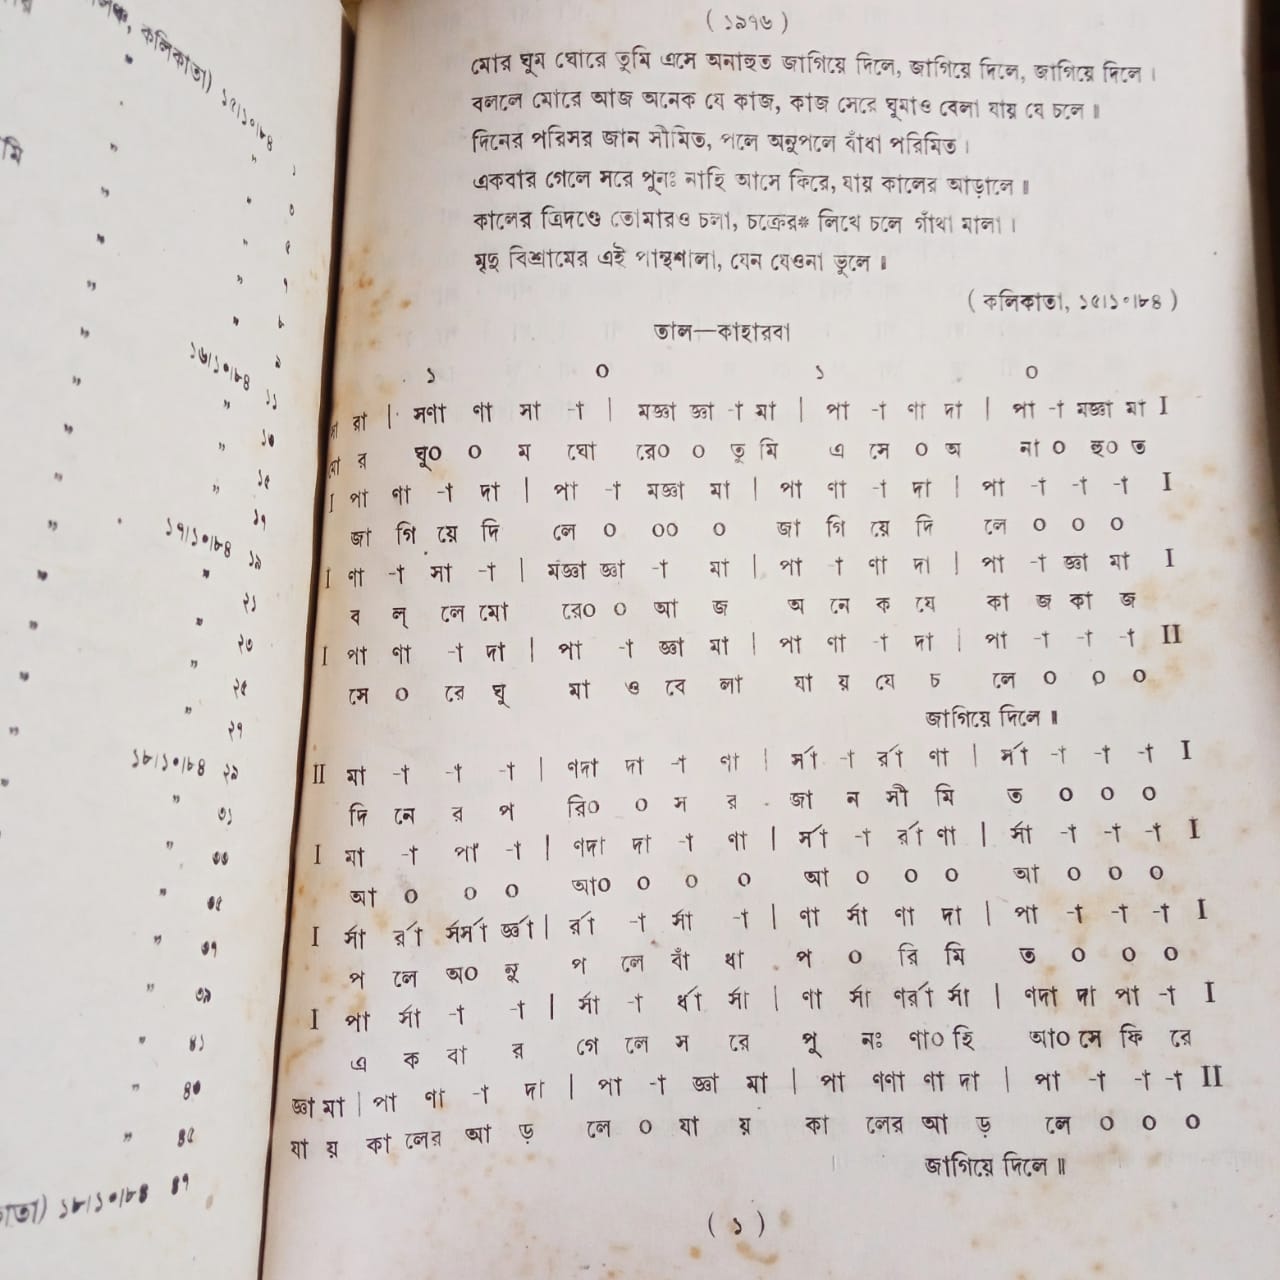 জক, কলিকাতা) ১৫।১০।৮৪
১
৩
৫
৭
৮
৯
১৬।১০।৮৪ ১১
১৩
১৫
১৭
১৭।১০।৮৪ ১৯
২১
২৩
২৫
২৭
১৮।১০।৮৪ ২৯
৩১
৩৩
৩৫
৩৭
৩৯
৪১
৪৩
৪৫
১৮।১০।৮৪ ৪৭
( ১৯৭৬ )
মোর ঘুম ঘোরে তুমি এসে অনাহুত জাগিয়ে দিলে, জাগিয়ে দিলে, জাগিয়ে দিলে ।
বললে মোরে আজ অনেক যে কাজ, কাজ সেরে ঘুমাও বেলা যায় যে চলে ॥
দিনের পরিসর জান সীমিত, পলে অনুপলে বাঁধা পরিমিত ।
একবার গেলে সরে পুনঃ নাহি আসে ফিরে, যায় কালের আড়ালে ॥
কালের ত্রিদণ্ডে তোমারও চলা, চক্রের* লিখে চলে গাঁথা মালা ।
মৃদু বিশ্রামের এই পান্থশালা, যেন যেওনা ভুলে ॥
( কলিকাতা, ১৫।১০।৮৪ )
তাল—কাহারবা
১ ০ ১ ০
রা | সণা ণা সা -া | মজ্ঞা জ্ঞা -া মা | পা -া ণা দা | পা -া মজ্ঞা মা I
র ঘু০ ০ ম ঘো রে০ ০ তু মি এ সে ০ অ না ০ হু০ ত
I পা ণা -া দা | পা -া মজ্ঞা মা | পা ণা -া দা | পা -া -া -া I
জা গি য়ে দি লে ০ ০০ ০ জা গি য়ে দি লে ০ ০ ০
I ণা -া সা -া | মজ্ঞা জ্ঞা -া মা | পা -া ণা দা | পা -া জ্ঞা মা I
ব ল্ লে মো রে০ ০ আ জ অ নে ক যে কা জ কা জ
I পা ণা -া দা | পা -া জ্ঞা মা | পা ণা -া দা | পা -া -া -া II
সে ০ রে ঘু মা ও বে লা যা য় যে চ লে ০ ০ ০
জাগিয়ে দিলে ॥
II মা -া -া -া | ণদা দা -া ণা | র্সা -া র্রা ণা | র্সা -া -া -া I
দি নে র প রি০ ০ স র জা ন সী মি ত ০ ০ ০
I মা -া পা -া | ণদা দা -া ণা | র্সা -া র্রা ণা | র্সা -া -া -া I
আ ০ ০ ০ আ০ ০ ০ ০ আ ০ ০ ০ আ ০ ০ ০
I র্সা র্রা র্সর্মা র্জ্ঞা | র্রা -া র্সা -া | ণা র্সা ণা দা | পা -া -া -া I
প লে অ০ নু প লে বাঁ ধা প ০ রি মি ত ০ ০ ০
I পা র্সা -া -া | র্সা -া র্ধা র্সা | ণা র্সা ণর্রা র্সা | ণদা দা পা -া I
এ ক বা র গে লে স রে পু নঃ ণা০ হি আ০ সে ফি রে
জ্ঞা মা | পা ণা -া দা | পা -া জ্ঞা মা | পা ণণা ণা দা | পা -া -া -া II
যা য় কা লের আ ড় লে ০ যা য় কা লের আ ড় লে ০ ০ ০
জাগিয়ে দিলে ॥
( ১ )